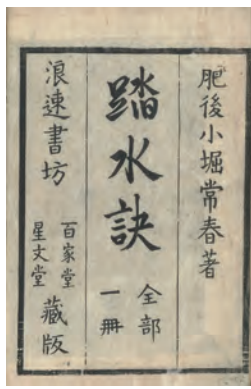 肥後小堀常春著
踏水訣
全部
一冊
浪速書坊
百家堂
星文堂
藏版